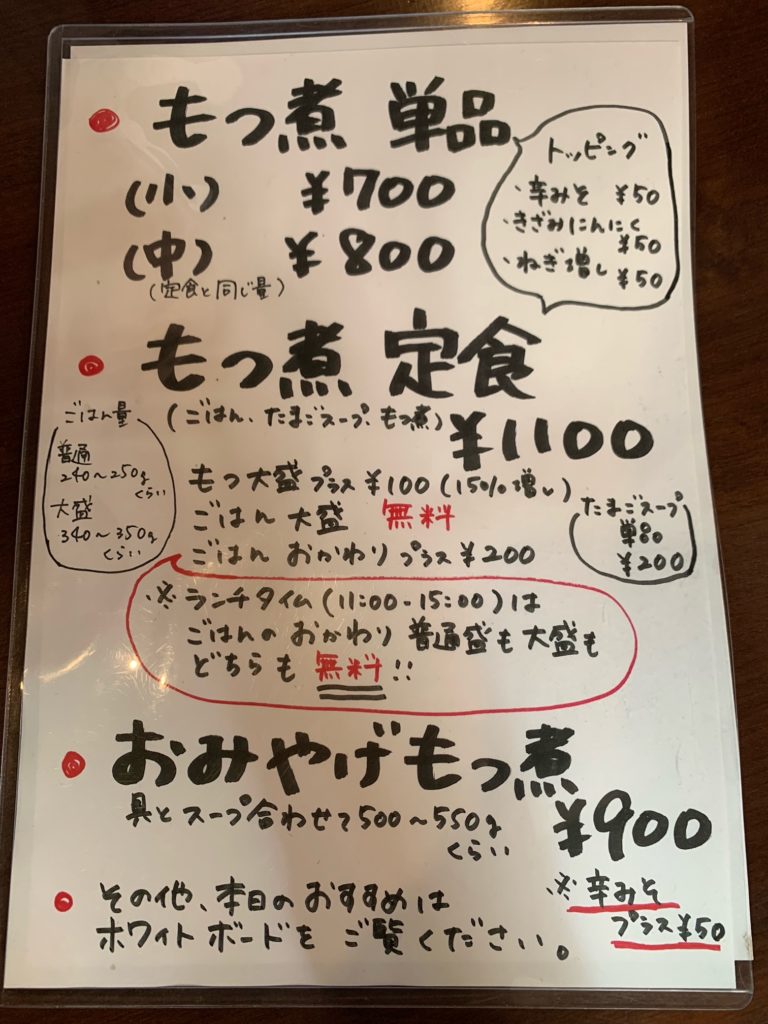 もつ煮 単品
(小) ¥700
(中) ¥800
(定食と同じ量)
トッピング
・辛みそ ¥50
・きざみにんにく
¥50
・ねぎ増し ¥50
もつ煮 定食
(ごはん、たまごスープ、もつ煮)
¥1100
ごはん量
普通
240〜250g
くらい
大盛
340〜350g
くらい
もつ大盛プラス¥100(15%増し)
ごはん 大盛 無料
ごはん おかわり プラス¥200
たまごスープ
単品
¥200
※ランチタイム(11:00-15:00)は
ごはんの おかわり 普通盛も大盛も
どちらも 無料!!
おみやげもつ煮
具とスープ合わせて500〜550g
くらい
¥900
※辛みそ
プラス¥50
その他、本日の おすすめは
ホワイトボードを ご覧ください。